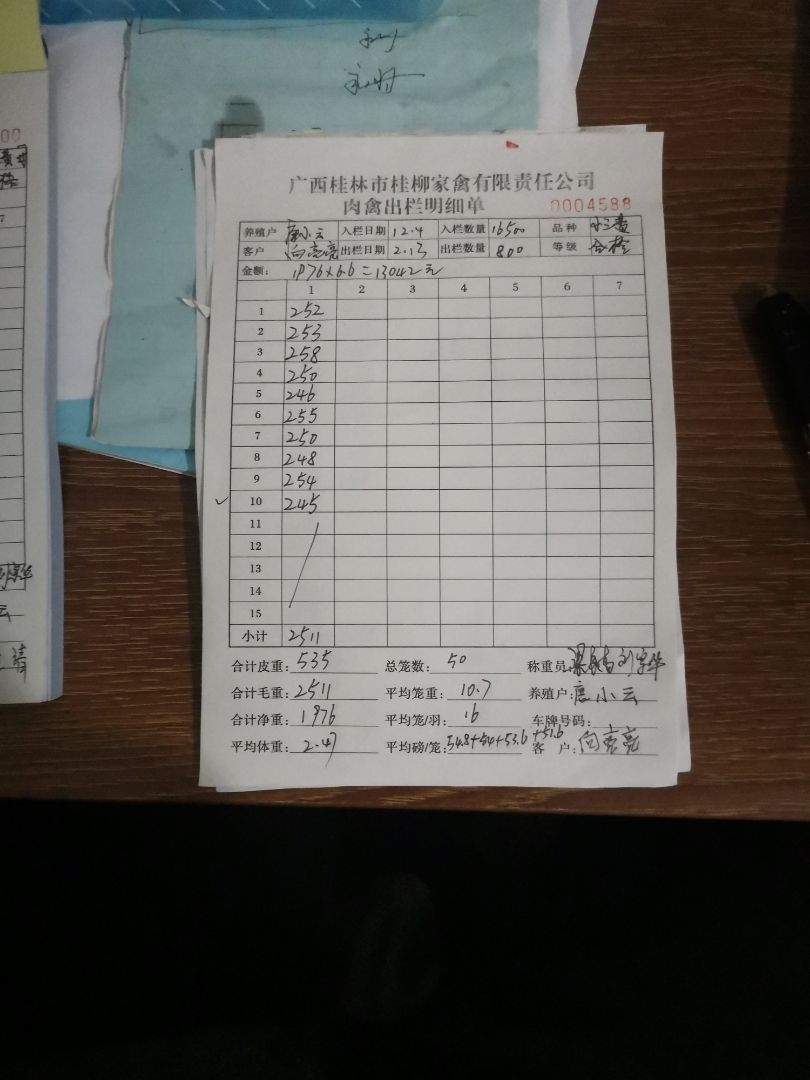 广西桂林市桂柳家禽有限责任公司
肉禽出栏明细单
0004588
养殖户 唐小云 入栏日期 12.4 入栏数量 16500 品种
客户 向亮亮 出栏日期 2.13 出栏数量 800 等级 合格
金额: 1976×6.6=13042元
1 2 3 4 5 6 7
1 252
2 253
3 258
4 250
5 246
6 255
7 250
8 248
9 254
10 245
11
12
13
14
15
小计 2511
合计皮重: 535 总笼数: 50 称重员:
合计毛重: 2511 平均笼重: 10.7 养殖户: 唐小云
合计净重: 1976 平均笼/羽: 16 车牌号码:
平均体重: 2.47 平均磅/笼: 54.8+54+53.6+51.6 客户: 向亮亮